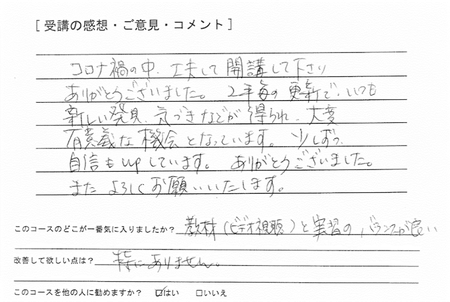 [ 受講の感想・ご意見・コメント ]
コロナ禍の中、工夫して開講して下さり
ありがとうございました。2年毎の更新で、いつも
新しい発見、気づきなどが得られ、大変
有意義な機会となっています。少しずつ
自信もupしています。ありがとうございました。
また よろしくお願いいたします。
このコースのどこが一番気に入りましたか? 教材(ビデオ視聴)と実習の、バランスが良い
改善して欲しい点は? 特にありません。
このコースを他の人に勧めますか? ☑はい □いいえ